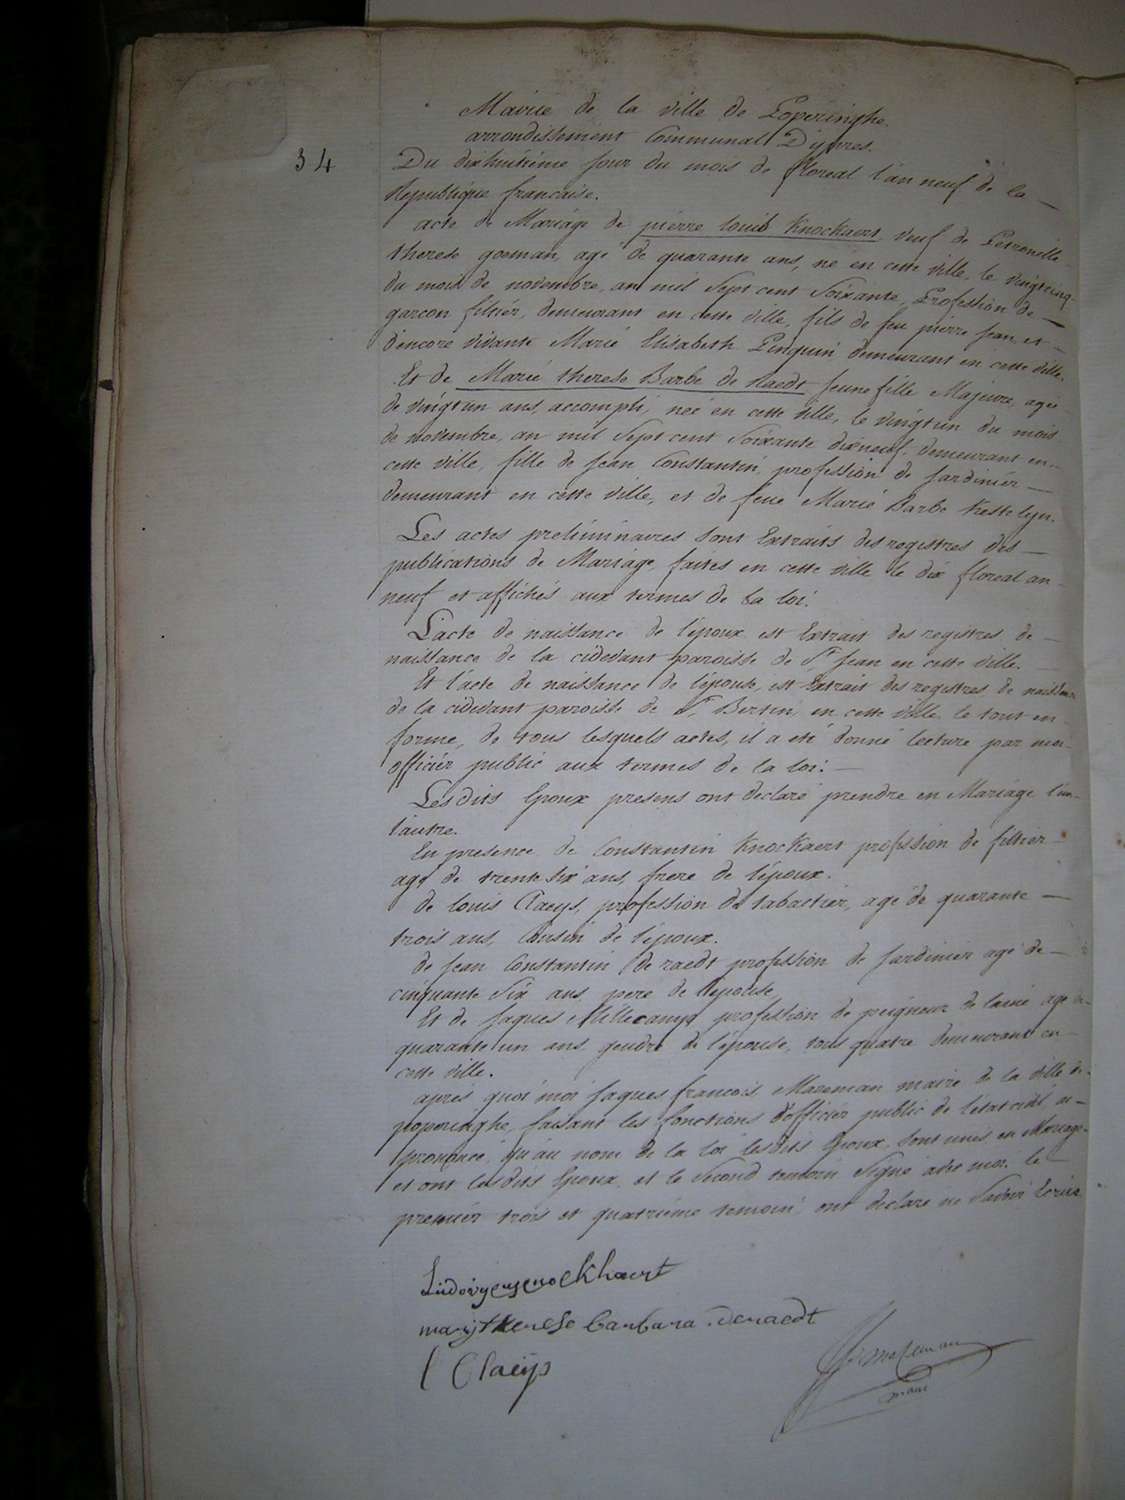 34
Mairie de la ville de Poperinghe
arrondissement Communal D'ypres.
Du dixhuitième jour du mois de floreal l'an neuf de la
Republique française.
acte de Mariage de pierre louis Knockaert veuf de Petronille
therese , agé de quarante ans, né en cette ville, le vingtcinq
du mois de novembre, an mil sept cent soixante, Profession de
garcon filtier, demeurant en cette ville, fils de feu pierre jean et
d'encore vivante Marie Elisabeth Pinguin demeurant en cette ville.
Et de Marie therese Barbe de Raedt jeune fille Majeure, agée
de vingtun ans, accompli, née en cette ville, le vingtun du mois
de novembre, an mil sept cent soixante dixneuf, demeurant en
cette ville, fille de jean Constantin, profession de jardinier
demeurant en cette ville, et de feue Marie Barbe Kestelyn.
Les actes preliminaires sont Extraits des registres des
publications de Mariage, faites en cette ville le dix floreal an
neuf et affichés aux termes de la loi.
L'acte de naissance de l'époux est Extrait des registres de
naissance de la cidevant paroisse de St. jean en cette ville.
Et l'acte de naissance de l'épouse, est Extrait des registres de naissance
de la cidevant paroisse de St. Bertin, en cette ville, le tout en
forme, de tous lesquels actes, il a eté donné lecture par moi
officier public aux termes de la loi.
Lesdits Epoux presens ont declaré prendre en Mariage l'un
l'autre.
En presence de Constantin Knockaert profession de filtier
agé de trente six ans, frere de l'époux.
de louis Claeys, profession de tabactier, agé de quarante
trois ans, Cousin de l'époux.
de jean Constantin de raedt profession de jardinier agé de
cinquante six ans pere de l'épouse
Et de jaques Millecamp profession de peigneur de laine agé de
quarante un ans gendre de l'épouse, tous quatre demeurant en
cette ville.
après quoi moi jaques francois Mazeman maire de la ville de
poperinghe, faisant les fonctions d'officier public de l'etat civil ai
prononcé, qu'au nom de la loi lesdits Epoux, sont unis en Mariage
et ont lesdits Epoux et le second temoin signé avec moi. le
premier trois et quatrième temoin ont declaré ne savoir Ecrire
marij therese barbara deraedt
l Claeijs
maire